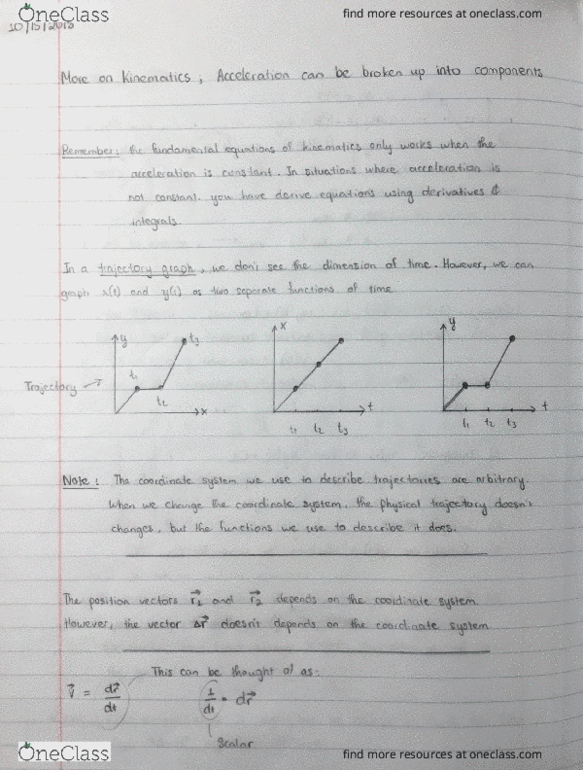 OneClass
find more resources at oneclass.com
10/15/2013
More on Kinematics; Acceleration can be broken up into components
Remember: the fundamental equations of kinematics only works when the
acceleration is constant. In situations where acceleration is
not constant, you have derive equations using derivatives &
integrals.
In a trajectory graph, we don't see the dimension of time. However, we can
graph x(t) and y(t) as two seperate functions of time.
Trajectory
y
x
t₁
t₂
t₃
x
t
t₁ t₂ t₃
y
t
t₁ t₂ t₃
Note: The coordinate system we use to describe trajectories are arbitrary.
When we change the coordinate system, the physical trajectory doesn't
changes, but the functions we use to describe it does.
The position vectors r⃗₁ and r⃗₂ depends on the coordinate system.
However, the vector Δr⃗ doesn't depends on the coordinate system
This can be thought of as:
v⃗ = dr⃗/dt
1/dt · dr⃗
Scalar
OneClass
find more resources at oneclass.com